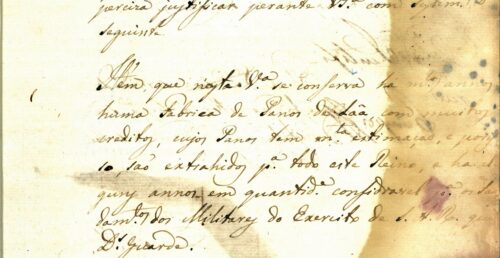 perciza justificar perante V.ª com o
seguinte
Item que nesta V.ª se conserva ha m.ᵗˢ annos
huma Fabrica de Panos de Lãa com muitos
creditos, cujos Panos tem m.ᵗᵃ estimação e por
so, são extrahidos p.ª todo este Reino, e ha al
guns annos em quantid.ᵉ consideravel p.ª os
dam.ᵗᵒˢ dos Militares do Exercito de S. A. R. que
D.ˢ Guarde.